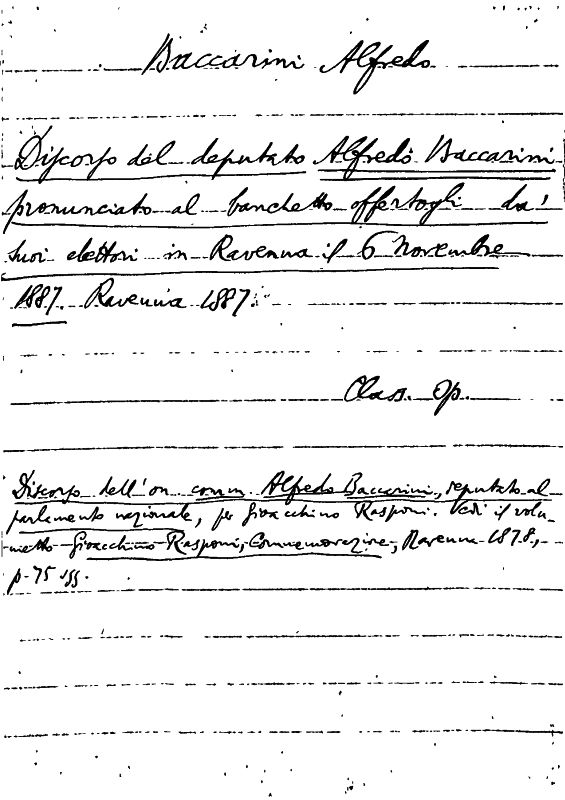 Baccarini Alfredo
Discorso del deputato Alfredo Baccarini
pronunciato al banchetto offertogli da'
suoi elettori in Ravenna il 6 Novembre
1887. Ravenna 1887.
Class. Op.
Discorso dell'on comm. Alfredo Baccarini, deputato al
parlamento nazionale, per Gioacchino Rasponi. Vedi il volu-
metto Gioacchino Rasponi, Commemorazione, Ravenna 1878,
p. 75 sgg.